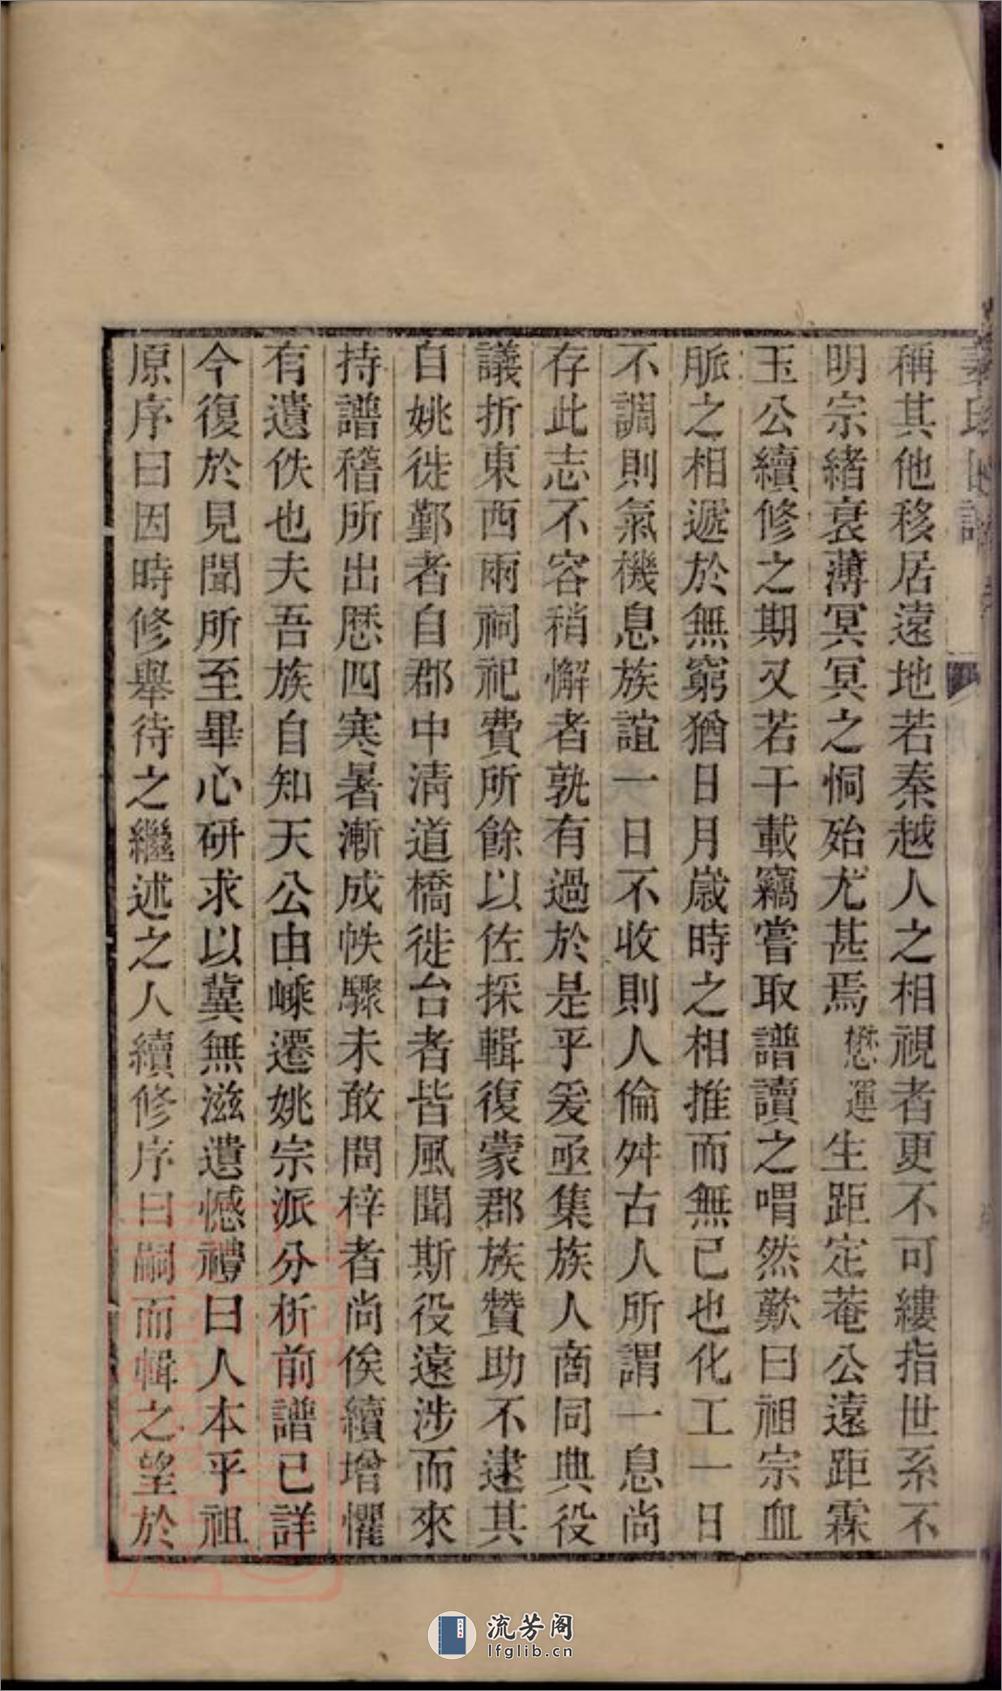 稱其他移居遠地若秦越人之相視者更不可縷指世系不
明宗緒衰薄冥冥之恫殆尤甚焉懋運生距定菴公遠距霖
玉公續修之期又若干載竊嘗取譜讀之喟然歎曰祖宗血
脈之相遞於無窮猶日月歲時之相推而無已也化工一日
不調則氣機息族誼一日不收則人倫舛古人所謂一息尚
存此志不容稍懈者孰有過於是乎爰亟集族人商同典役
議折東西兩祠祀費所餘以佐採輯復蒙郡族贊助不逮其
自姚徙鄞者自郡中清道橋徙台者皆風聞斯役遠涉而來
持譜稽所出歷四寒暑漸成帙驟未敢問梓者尚俟續增懼
有遺佚也夫吾族自知天公由嵊遷姚宗派分析前譜已詳
今復於見聞所至畢心研求以冀無滋遺憾禮曰人本乎祖
原序曰因時修舉待之繼述之人續修序曰嗣而輯之望於
流芳阁
lfglib.cn